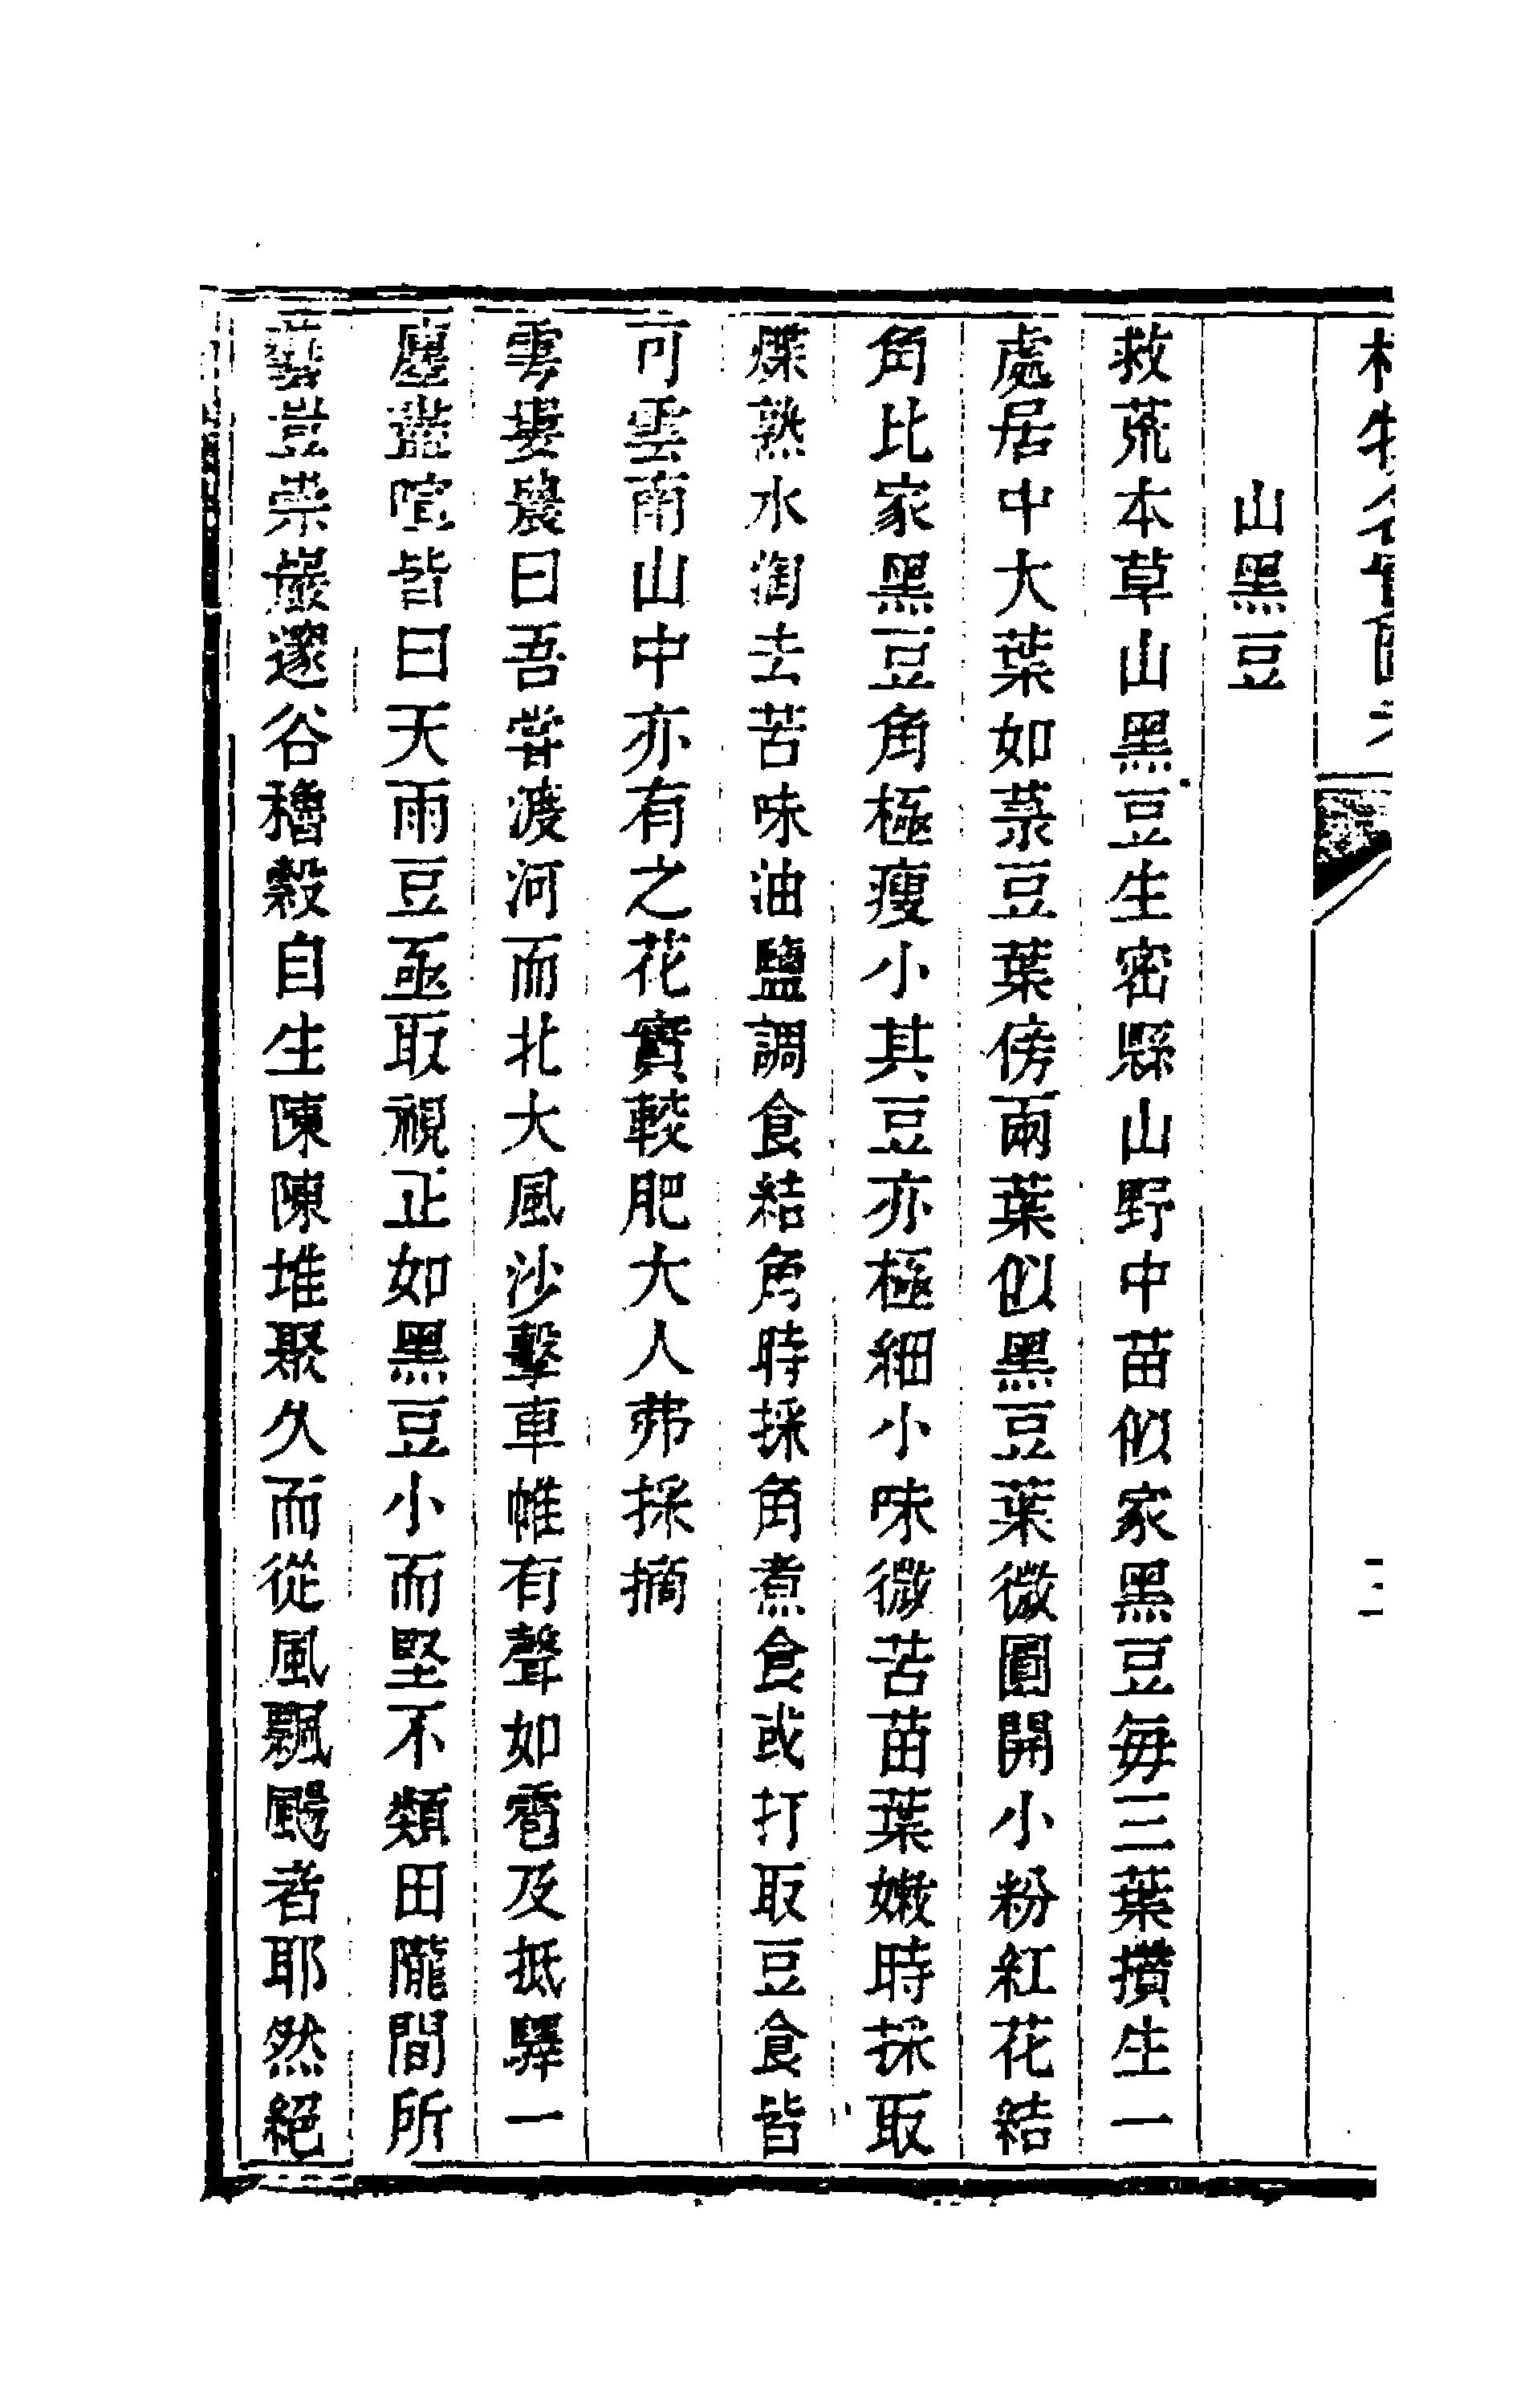 山黑豆
救荒本草山黑豆生密縣山野中苗似家黑豆每三葉攢生一
處居中大葉如菉豆葉傍兩葉似黑豆葉微圓開小粉紅花結
角比家黑豆角極瘦小其豆亦極細小味微苦苗葉嫩時採取
煠熟水淘去苦味油鹽調食結角時採角煮食或打取豆食皆
可雲南山中亦有之花實較肥大人弗採摘
雩婁農曰吾嘗渡河而北大風沙擊車帷有聲如雹及抵驛一
塵 喧皆曰天雨豆亟取視正如黑豆小而堅不類田隴間所
藝豈崇巖邃谷穭穀自生陳陳堆聚久而從風飄颺者耶然絕